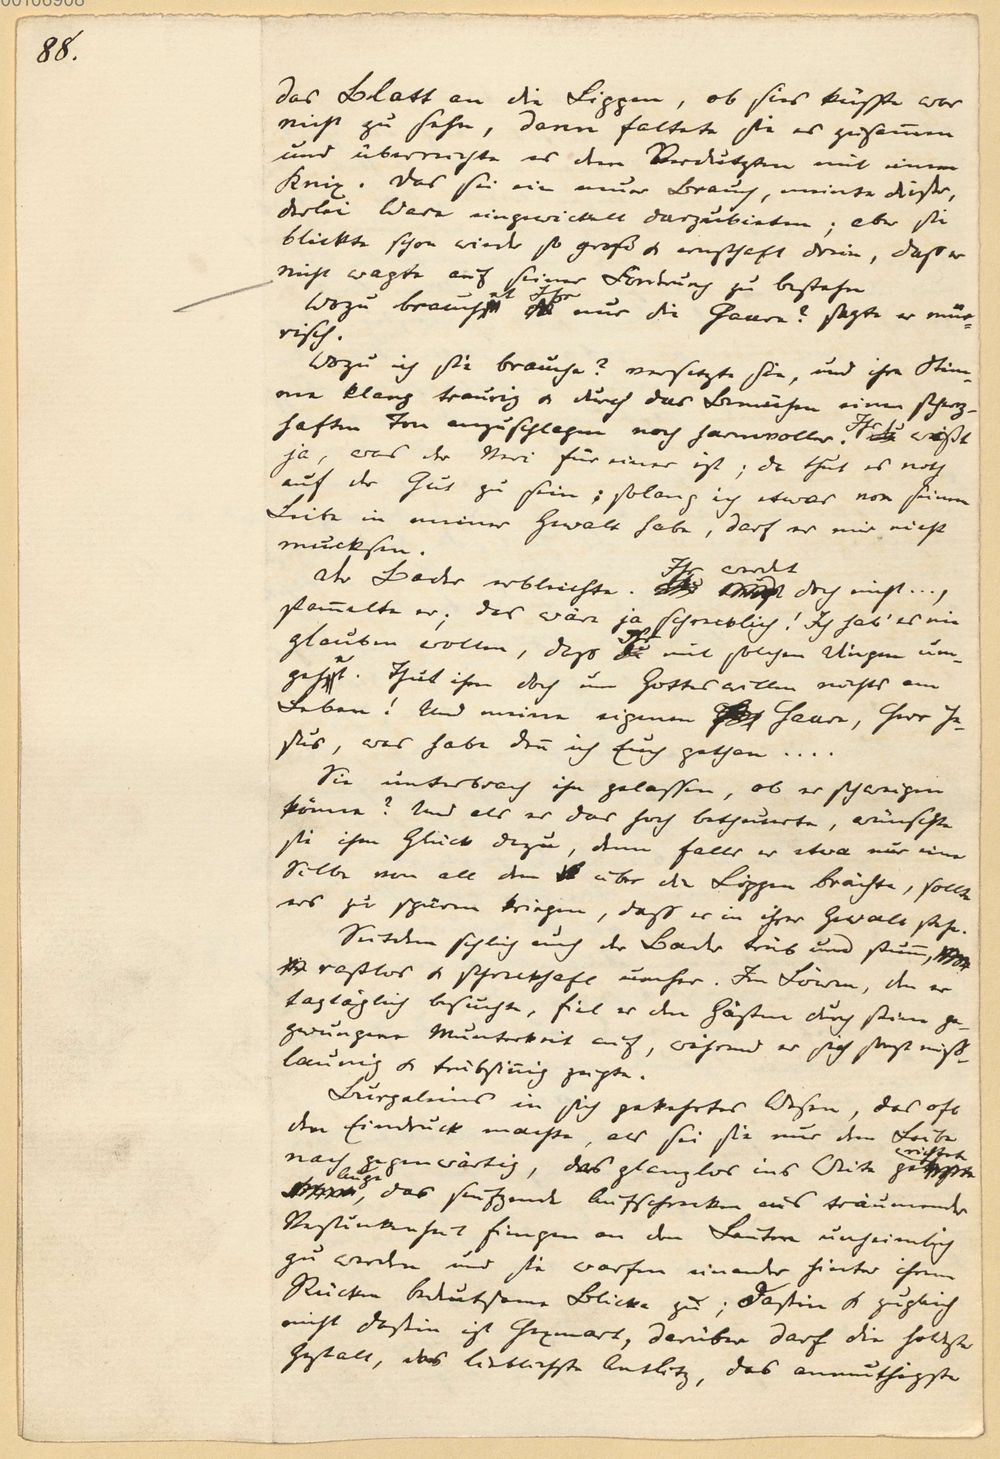 00106908
88.
das Blatt an die Lippen, ob sies küsste war
nicht zu sehn, dann faltete sie es zusam̅en
und überreichte es dem Verdutzten mit einem
Knix. Das sei ein neuer Brauch, meinte dieser,
derlei Ware eingewickelt darzubieten; aber sie
blickte schon wieder so groß & ernsthaft drein, dass er
nicht wagte auf seiner Fordrung zu bestehn
Wozu braucht Ihr nur die Haare? sagte er mür-
risch.
Wozu ich sie brauche? versetzte sie, und ihre Stim-
me klang traurig & durch das Bemühen einen scherz-
haften Ton anzuschlagen noch harmvoller. Ihr wißt
ja, was der Veri für einer ist; da thut es noth
auf der Hut zu sein; solang ich etwas von seinem
Leibe in meiner Gewalt habe, darf er mir nicht
mucksen.
Der Bader erbleichte. Ihr werdet doch nicht...,
stam̅elte er; das wäre ja schrecklich! Ich hab' es nie
glauben wollen, dass Ihr mit solchen Dingen um-
geht. Thut ihm doch um Gotteswillen nichts am
Leben! Und meine eigenen Haare, Herr Je-
sus, was habe den̅ ich Euch gethan ....
Sie unterbrach ihn gelassen, ob er schweigen
könne? Und als er das hoch betheuerte, wünschte
sie ihm Glück dazu, denn falls er etwa nur eine
Silbe von all dem über die Lippen brächte, sollte
ers zu spüren kriegen, dass er in ihrer Gewalt steh.
Seitdem schlich auch der Bader trüb und stum̅,
rastlos & schreckhaft umher. Im Löwen, den er
tagtäglich besuchte, fiel er den Gästen durch seine ge-
zwungene Munterkeit auf, während er sich sonst miß-
launig & trübsin̅ig zeigte.
Burgaleins in sich gekehrtes Wesen, das oft
den Eindruck machte, als sei sie nur dem Leibe
nach gegenwärtig, das glanzlos ins Weite gerichtete
Auge, das seufzende Aufschrecken aus träumender
Versunkenheit fingen an den Leuten unheimlich
zu werden und sie warfen einander hinter ihrem
Rücken bedeutsame Blicke zu; Dasein & zugleich
nicht dasein ist Hexenart, darüber darf die holdeste
Gestalt, das lieblichste Antlitz, das anmuthigste